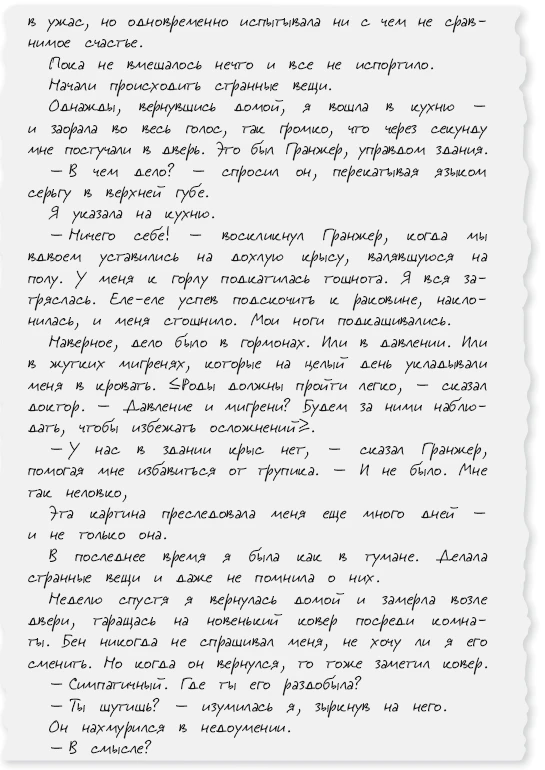 в ужас, но одновременно испытывала ни с чем не срав-
нимое счастье.
Пока не вмешалось нечто и все не испортило.
Начали происходить странные вещи.
Однажды, вернувшись домой, я вошла в кухню —
и заорала во весь голос, так громко, что через секунду
мне постучали в дверь. Это был Гранжер, управдом здания.
— В чем дело? — спросил он, перекатывая языком
серьгу в верхней губе.
Я указала на кухню.
— Ничего себе! — воскликнул Гранжер, когда мы
вдвоем уставились на дохлую крысу, валявшуюся на
полу. У меня к горлу подкатилась тошнота. Я вся за-
тряслась. Еле-еле успев подскочить к раковине, накло-
нилась, и меня стошнило. Мои ноги подкашивались.
Наверное, дело было в гормонах. Или в давлении. Или
в жутких мигренях, которые на целый день укладывали
меня в кровать. ≤Роды должны пройти легко, — сказал
доктор. — Давление и мигрени? Будем за ними наблю-
дать, чтобы избежать осложнений≥.
— У нас в здании крыс нет, — сказал Гранжер,
помогая мне избавиться от трупика. — И не было. Мне
так неловко,
Эта картина преследовала меня еще много дней —
и не только она.
В последнее время я была как в тумане. Делала
странные вещи и даже не помнила о них.
Неделю спустя я вернулась домой и замерла возле
двери, таращась на новенький ковер посреди комна-
ты. Бен никогда не спрашивал меня, не хочу ли я его
сменить. Но когда он вернулся, то тоже заметил ковер.
— Симпатичный. Где ты его раздобыла?
— Ты шутишь? — изумилась я, зыркнув на него.
Он нахмурился в недоумении.
— В смысле?